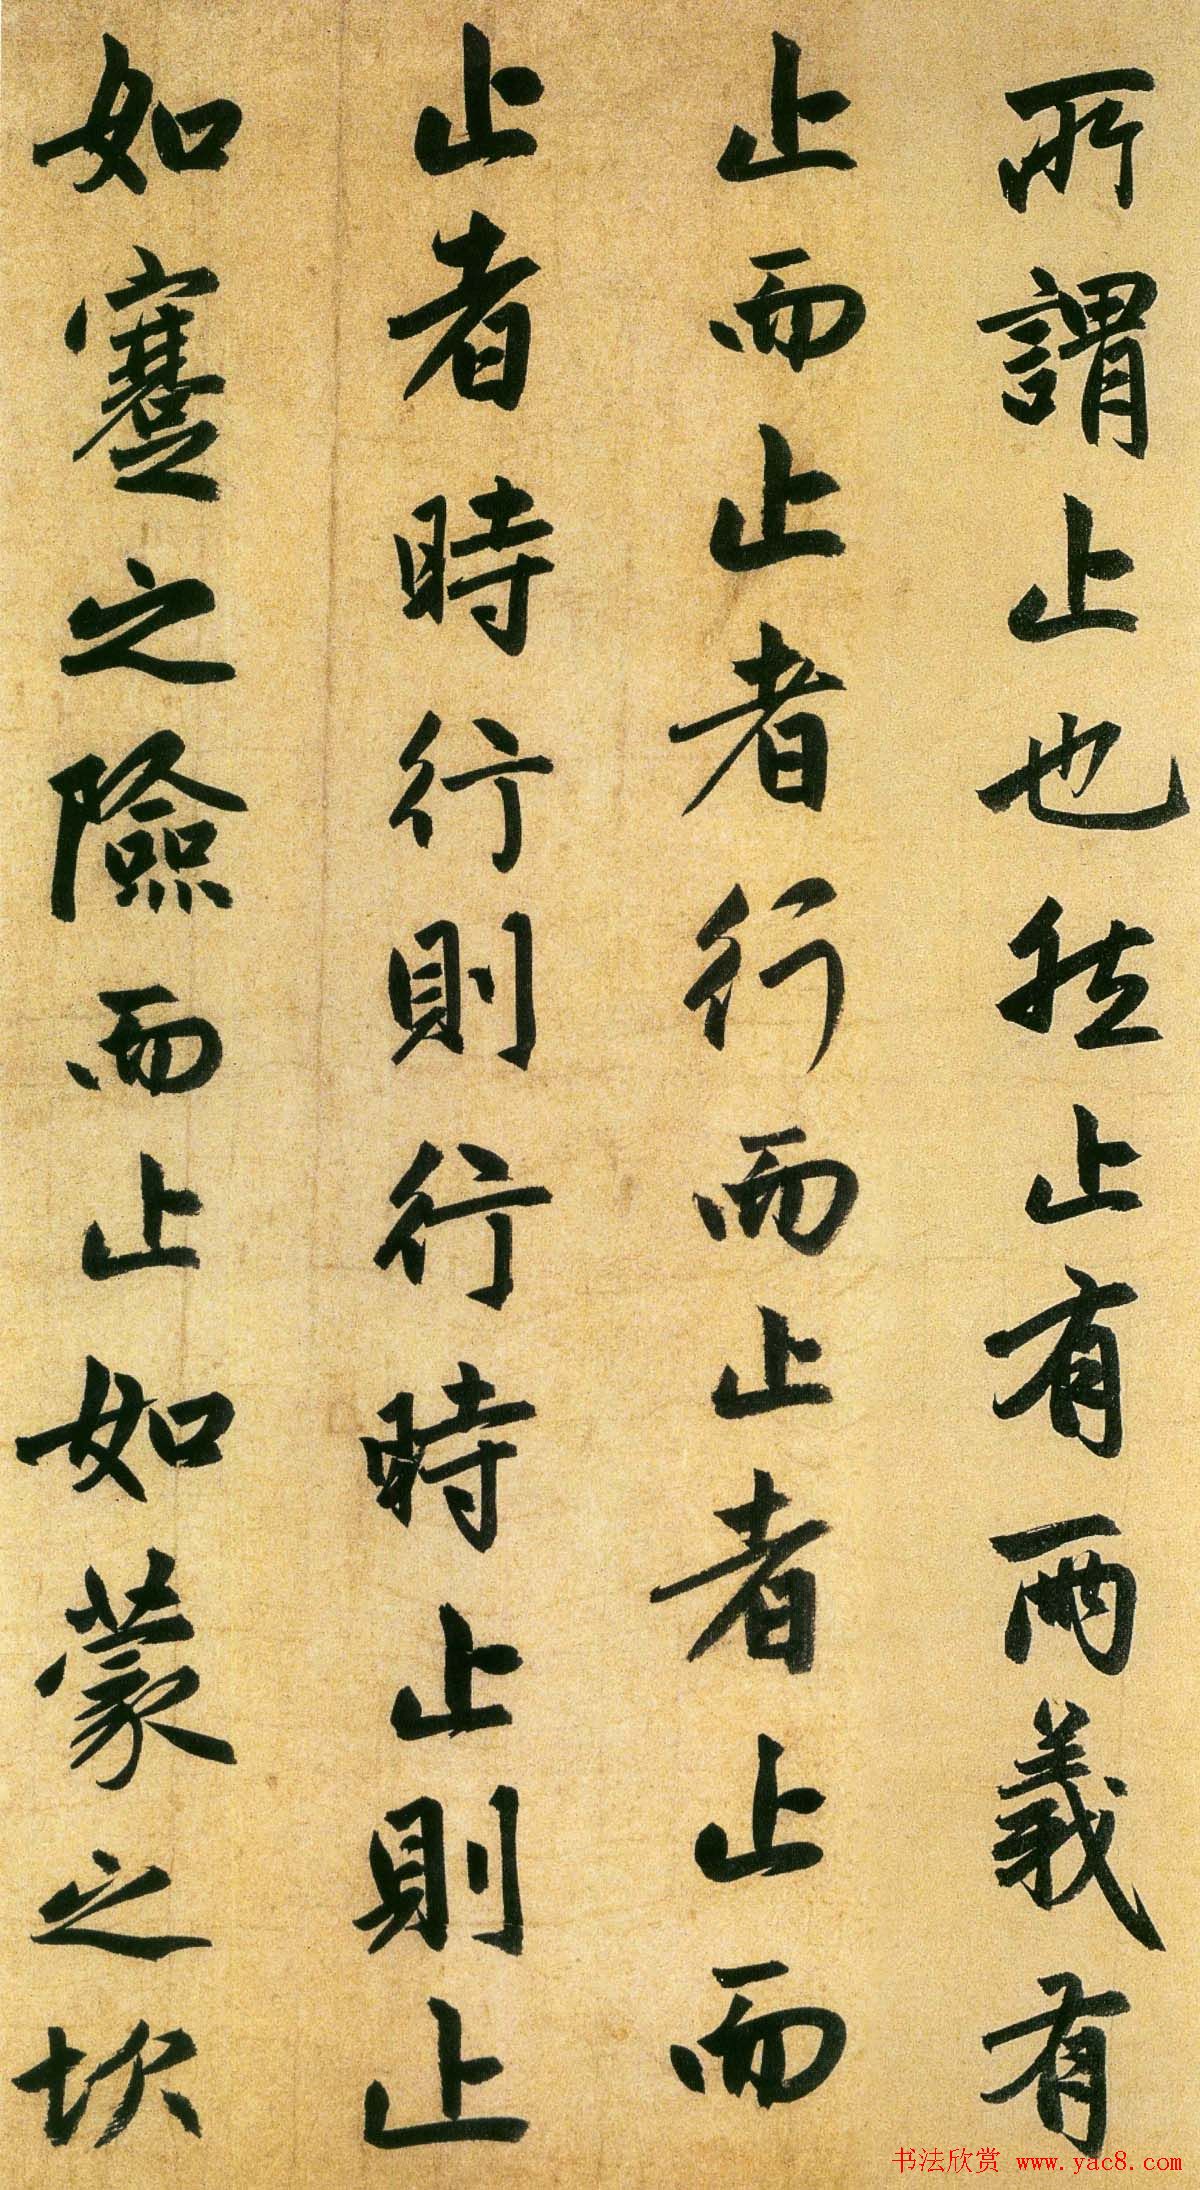 所謂止也然止有兩義有
止而止者行而止者止而
止者時行則行時止則止
如蹇之險而止如蒙之坎
书法欣赏 www.yac8.com